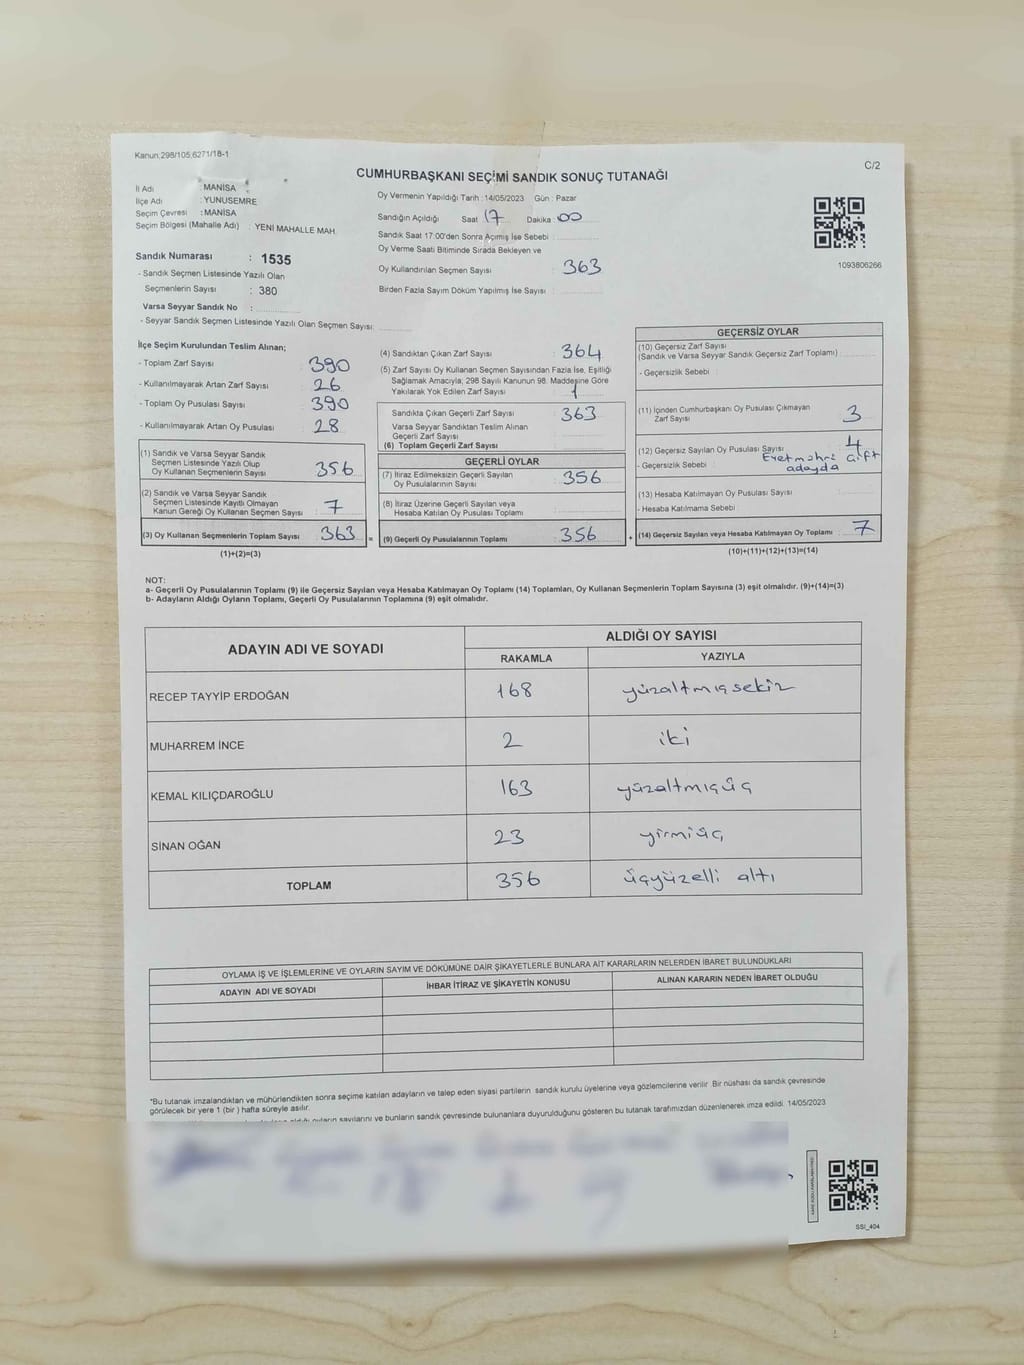 Kanun;298/105;6271/18-1
C/2
CUMHURBAŞKANI SEÇİMİ SANDIK SONUÇ TUTANAĞI
İl Adı : MANİSA
İlçe Adı : YUNUSEMRE
Seçim Çevresi : MANİSA
Seçim Bölgesi (Mahalle Adı) : YENİ MAHALLE MAH.
Sandık Numarası : 1535
- Sandık Seçmen Listesinde Yazılı Olan
Seçmenlerin Sayısı : 380
Varsa Seyyar Sandık No :
- Seyyar Sandık Seçmen Listesinde Yazılı Olan Seçmen Sayısı:
Oy Vermenin Yapıldığı Tarih : 14/05/2023 Gün : Pazar
Sandığın Açıldığı Saat 17 Dakika : 00
Sandık Saat 17:00'den Sonra Açılmış İse Sebebi :
Oy Verme Saati Bitiminde Sırada Bekleyen ve
Oy Kullandırılan Seçmen Sayısı : 363
Birden Fazla Sayım Döküm Yapılmış İse Sayısı :
1093806266
İlçe Seçim Kurulundan Teslim Alınan;
- Toplam Zarf Sayısı : 390
- Kullanılmayarak Artan Zarf Sayısı : 26
- Toplam Oy Pusulası Sayısı : 390
- Kullanılmayarak Artan Oy Pusulası : 28
(1) Sandık ve Varsa Seyyar Sandık
Seçmen Listesinde Yazılı Olup
Oy Kullanan Seçmenlerin Sayısı : 356
(2) Sandık ve Varsa Seyyar Sandık
Seçmen Listesinde Kayıtlı Olmayan
Kanun Gereği Oy Kullanan Seçmen Sayısı : 7
(3) Oy Kullanan Seçmenlerin Toplam Sayısı : 363 =
(1)+(2)=(3)
(4) Sandıktan Çıkan Zarf Sayısı : 364
(5) Zarf Sayısı Oy Kullanan Seçmen Sayısından Fazla İse, Eşitliği
Sağlamak Amacıyla; 298 Sayılı Kanunun 98. Maddesine Göre
Yakılarak Yok Edilen Zarf Sayısı : 1
Sandıkta Çıkan Geçerli Zarf Sayısı : 363
Varsa Seyyar Sandıktan Teslim Alınan
Geçerli Zarf Sayısı :
(6) Toplam Geçerli Zarf Sayısı
GEÇERLİ OYLAR
(7) İtiraz Edilmeksizin Geçerli Sayılan
Oy Pusulalarının Sayısı : 356
(8) İtiraz Üzerine Geçerli Sayılan veya
Hesaba Katılan Oy Pusulası Toplamı :
(9) Geçerli Oy Pusulalarının Toplamı : 356 +
GEÇERSİZ OYLAR
(10) Geçersiz Zarf Sayısı
(Sandık ve Varsa Seyyar Sandık Geçersiz Zarf Toplamı) :
- Geçersizlik Sebebi :
(11) İçinden Cumhurbaşkanı Oy Pusulası Çıkmayan
Zarf Sayısı : 3
(12) Geçersiz Sayılan Oy Pusulası Sayısı : 4
- Geçersizlik Sebebi : Evet mührü çift
adayda
(13) Hesaba Katılmayan Oy Pusulası Sayısı :
- Hesaba Katılmama Sebebi :
(14) Geçersiz Sayılan veya Hesaba Katılmayan Oy Toplamı : 7
(10)+(11)+(12)+(13)=(14)
NOT:
a- Geçerli Oy Pusulalarının Toplamı (9) ile Geçersiz Sayılan veya Hesaba Katılmayan Oy Toplamı (14) Toplamları, Oy Kullanan Seçmenlerin Toplam Sayısına (3) eşit olmalıdır. (9)+(14)=(3)
b- Adayların Aldığı Oyların Toplamı, Geçerli Oy Pusulalarının Toplamına (9) eşit olmalıdır.
ADAYIN ADI VE SOYADI ALDIĞI OY SAYISI
RAKAMLA YAZIYLA
RECEP TAYYİP ERDOĞAN 168 yüzaltmışsekiz
MUHARREM İNCE 2 iki
KEMAL KILIÇDAROĞLU 163 yüzaltmışüç
SİNAN OĞAN 23 yirmiüç
TOPLAM 356 üçyüzelli altı
OYLAMA İŞ VE İŞLEMLERİNE VE OYLARIN SAYIM VE DÖKÜMÜNE DAİR ŞİKAYETLERLE BUNLARA AİT KARARLARIN NELERDEN İBARET BULUNDUKLARI
ADAYIN ADI VE SOYADI İHBAR İTİRAZ VE ŞİKAYETİN KONUSU ALINAN KARARIN NEDEN İBARET OLDUĞU
*Bu tutanak imzalandıktan ve mühürlendikten sonra seçime katılan adayların ve talep eden siyasi partilerin sandık kurulu üyelerine veya gözlemcilerine verilir. Bir nüshası da sandık çevresinde
görülecek bir yere 1 (bir ) hafta süreyle asılır.
oyların sayılarını ve bunların sandık çevresinde bulunanlara duyurulduğunu gösteren bu tutanak tarafımızdan düzenlenerek imza edildi. 14/05/2023
SSI_404